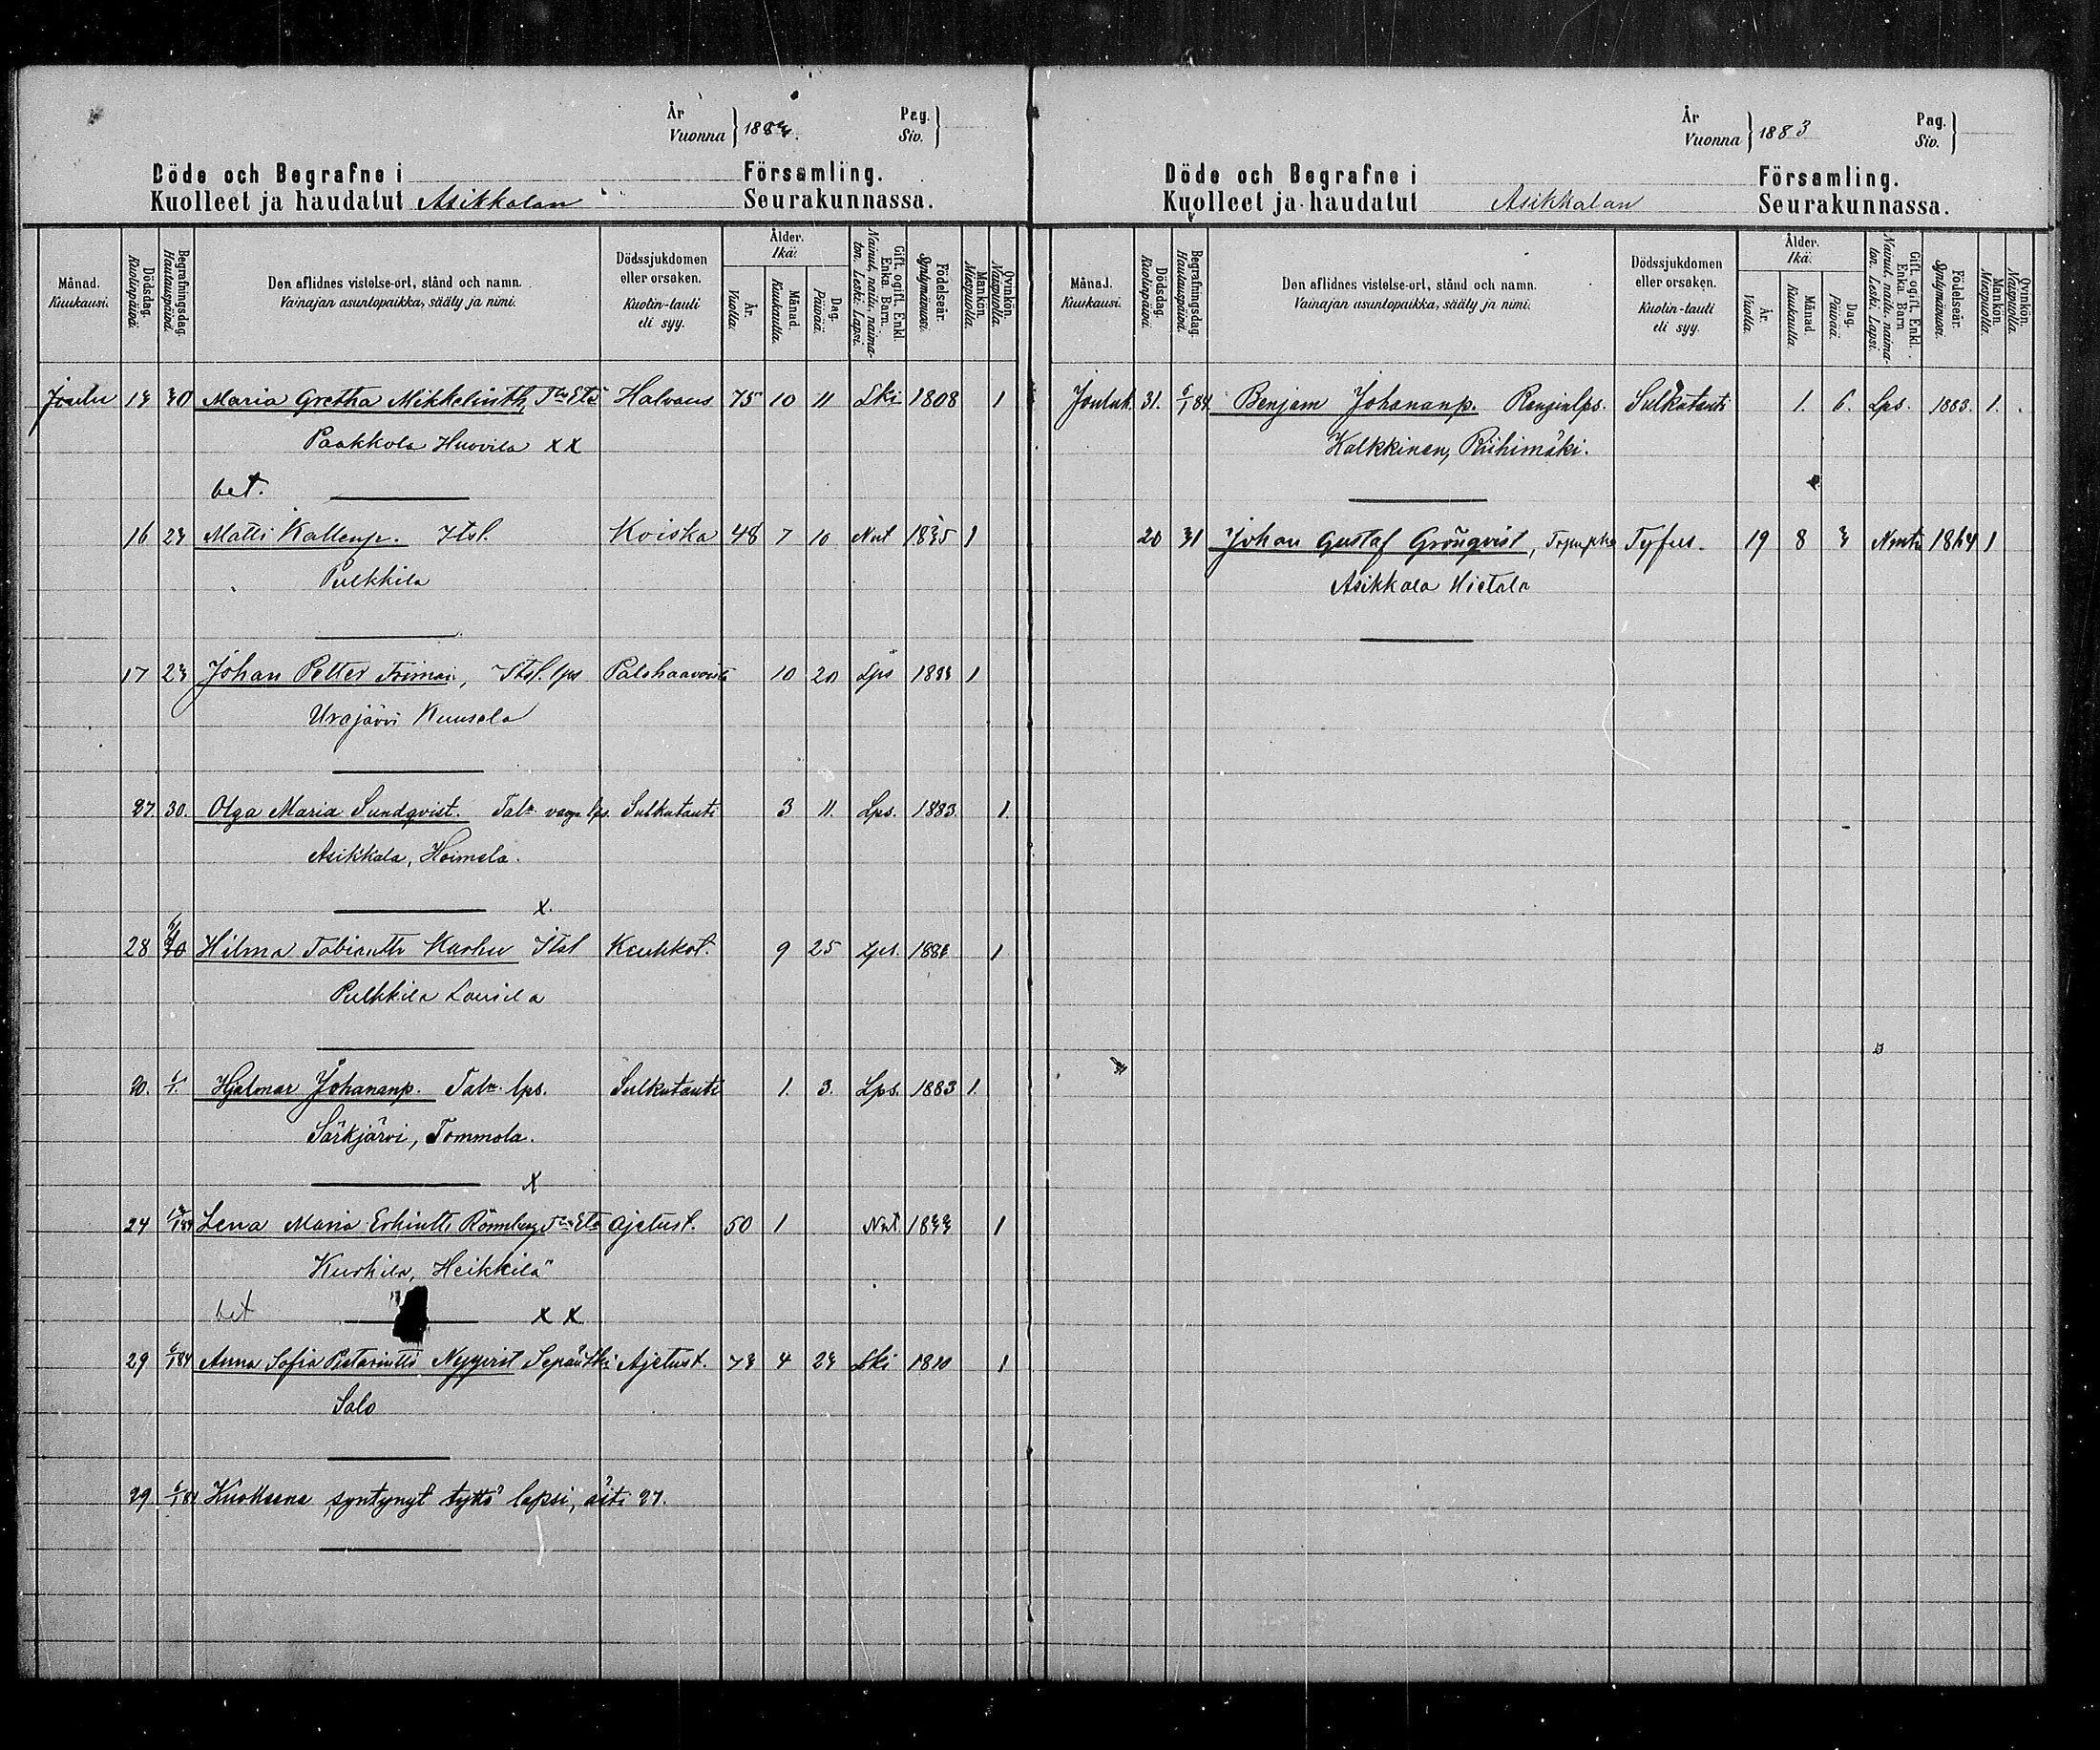 År
Vuonna } 188
Pag.
Siv. }
Döde och Begrafne i Församling.
Kuolleet ja haudatut Asikkalan Seurakunnassa.
Månad.
Kuukausi.
Dödsdag.
Kuolinpäivä.
Begrafningsdag.
Hautauspäivä.
Den aflidnes vistelse-ort, stånd och namn.
Vainajan asuntopaikka, sääty ja nimi.
Dödssjukdomen
eller orsaken.
Kuolin-tauti
eli syy.
Ålder.
Ikä.
År.
Vuotta.
Månad.
Kuukautta.
Dag.
Päivää.
Gift, ogift, Enkl.
Enka. Barn.
Nainut, naitu, naima-
ton. Leski. Lapsi.
Födelseår.
Syntymävuosi.
Mankön.
Miespuolia.
Qvinkön.
Naispuolia.
Joulu 13 30 Maria Gretha Mikkelintth, Halvaus 75 10 11 Lki 1808 1
Paakkola Huovila x x
bet.
16 23 Matti Kallenp. Itsl. Koiska 48 7 10 Nut 1835 1
Pulkkila
17 23 Johan Petter Friman, Itsl. lps Palohaavoista 10 20 Lps 1883 1
Urajärvi Kuusela
27. 30. Olga Maria Sundqvist. Tal: lps. Sulkutauti 3 11. Lps. 1883. 1.
Asikkala, Hoimela.
x.
28 Hilma Tobiantth Kurhu Itsl Keuhkot. 9 25 Lps. 188 1
Pulkkila Lausila
1/1. Hjalmar Johananp. Tal: lps. Sulkutauti 1. 3. Lps. 1883 1.
Särkjärvi, Tommola.
x
24 Lena Maria Erkintth Rönnberg Ajetust. 50 1 Nut. 1833 1
Kurhila, Heikkilä
bet x x
29 6/1 84 Anna Sofia Nyqvist Sepän lki Ajetust. 73 4 23 Lki 1810 1
Salo
29 6/1 84 Kuolleena syntynyt tyttö lapsi, äiti 27.
År
Vuonna } 1883
Pag.
Siv. }
Döde och Begrafne i Församling.
Kuolleet ja haudatut Asikkalan Seurakunnassa.
Månad.
Kuukausi.
Dödsdag.
Kuolinpäivä.
Begrafningsdag.
Hautauspäivä.
Den aflidnes vistelse-ort, stånd och namn.
Vainajan asuntopaikka, sääty ja nimi.
Dödssjukdomen
eller orsaken.
Kuolin-tauti
eli syy.
Ålder.
Ikä.
År.
Vuotta.
Månad
Kuukautta.
Dag.
Päivää.
Gift, ogift, Enkl.
Enka. Barn
Nainut, naitu, naima-
ton. Leski. Lapsi.
Födelseår.
Syntymävuosi.
Mankön.
Miespuolia.
Qvinkön.
Naispuolia.
Jouluk. 31. 6/1 84 Benjam Johananp. Renginlps. Sulkutauti 1. 6. Lps. 1883. 1.
Kalkkinen, Riihimäki.
20 31 Johan Gustaf Grönqvist, Tyfus. 19 8 3 1864 1
Asikkala Hietala